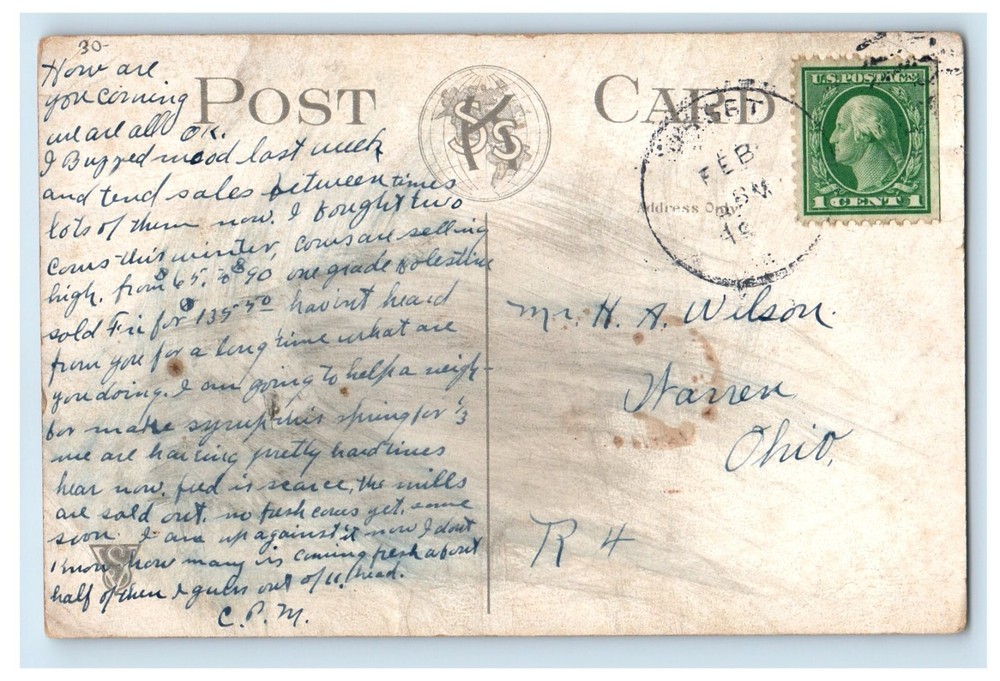 30-
How are
you coming
we are all OK.
I Buzzed wood last week
and tend sales between times
lots of them now. I bought two
cows this winter, cows are selling
high. from $65. to $90 one grade Holestine
sold Fri for $135 50 havint heard
from you for a long time what are
you doing. I am going to help a neigh-
bor make syrup this spring for 1/3
we are having pretty hard times
hear now. feed is scarce, the mills
are sold out. no fresh cows yet. some
soon. I am up against it now I dont
know how many is coming fresh about
half of them I guess out of 11 head.
C. P. M.
POST CARD
Address Only
FEB
U.S. POSTAGE
1 CENT 1
Mr. H. A. Wilson.
Warren
Ohio.
R 4